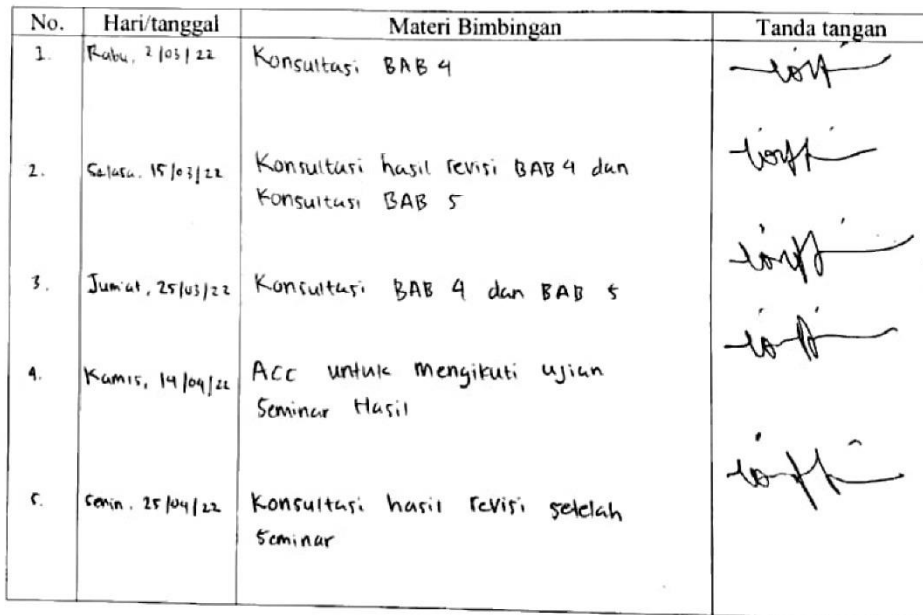 No. Hari/tanggal Materi Bimbingan Tanda tangan
1. Rabu, 2/03/22 Konsultasi BAB 4
2. Selasa, 15/03/22 Konsultasi hasil revisi BAB 4 dan
Konsultasi BAB 5
3. Jum'at, 25/03/22 Konsultasi BAB 4 dan BAB 5
4. Kamis, 14/04/22 ACC untuk mengikuti ujian
Seminar Hasil
5. Senin, 25/04/22 Konsultasi hasil revisi setelah
Seminar